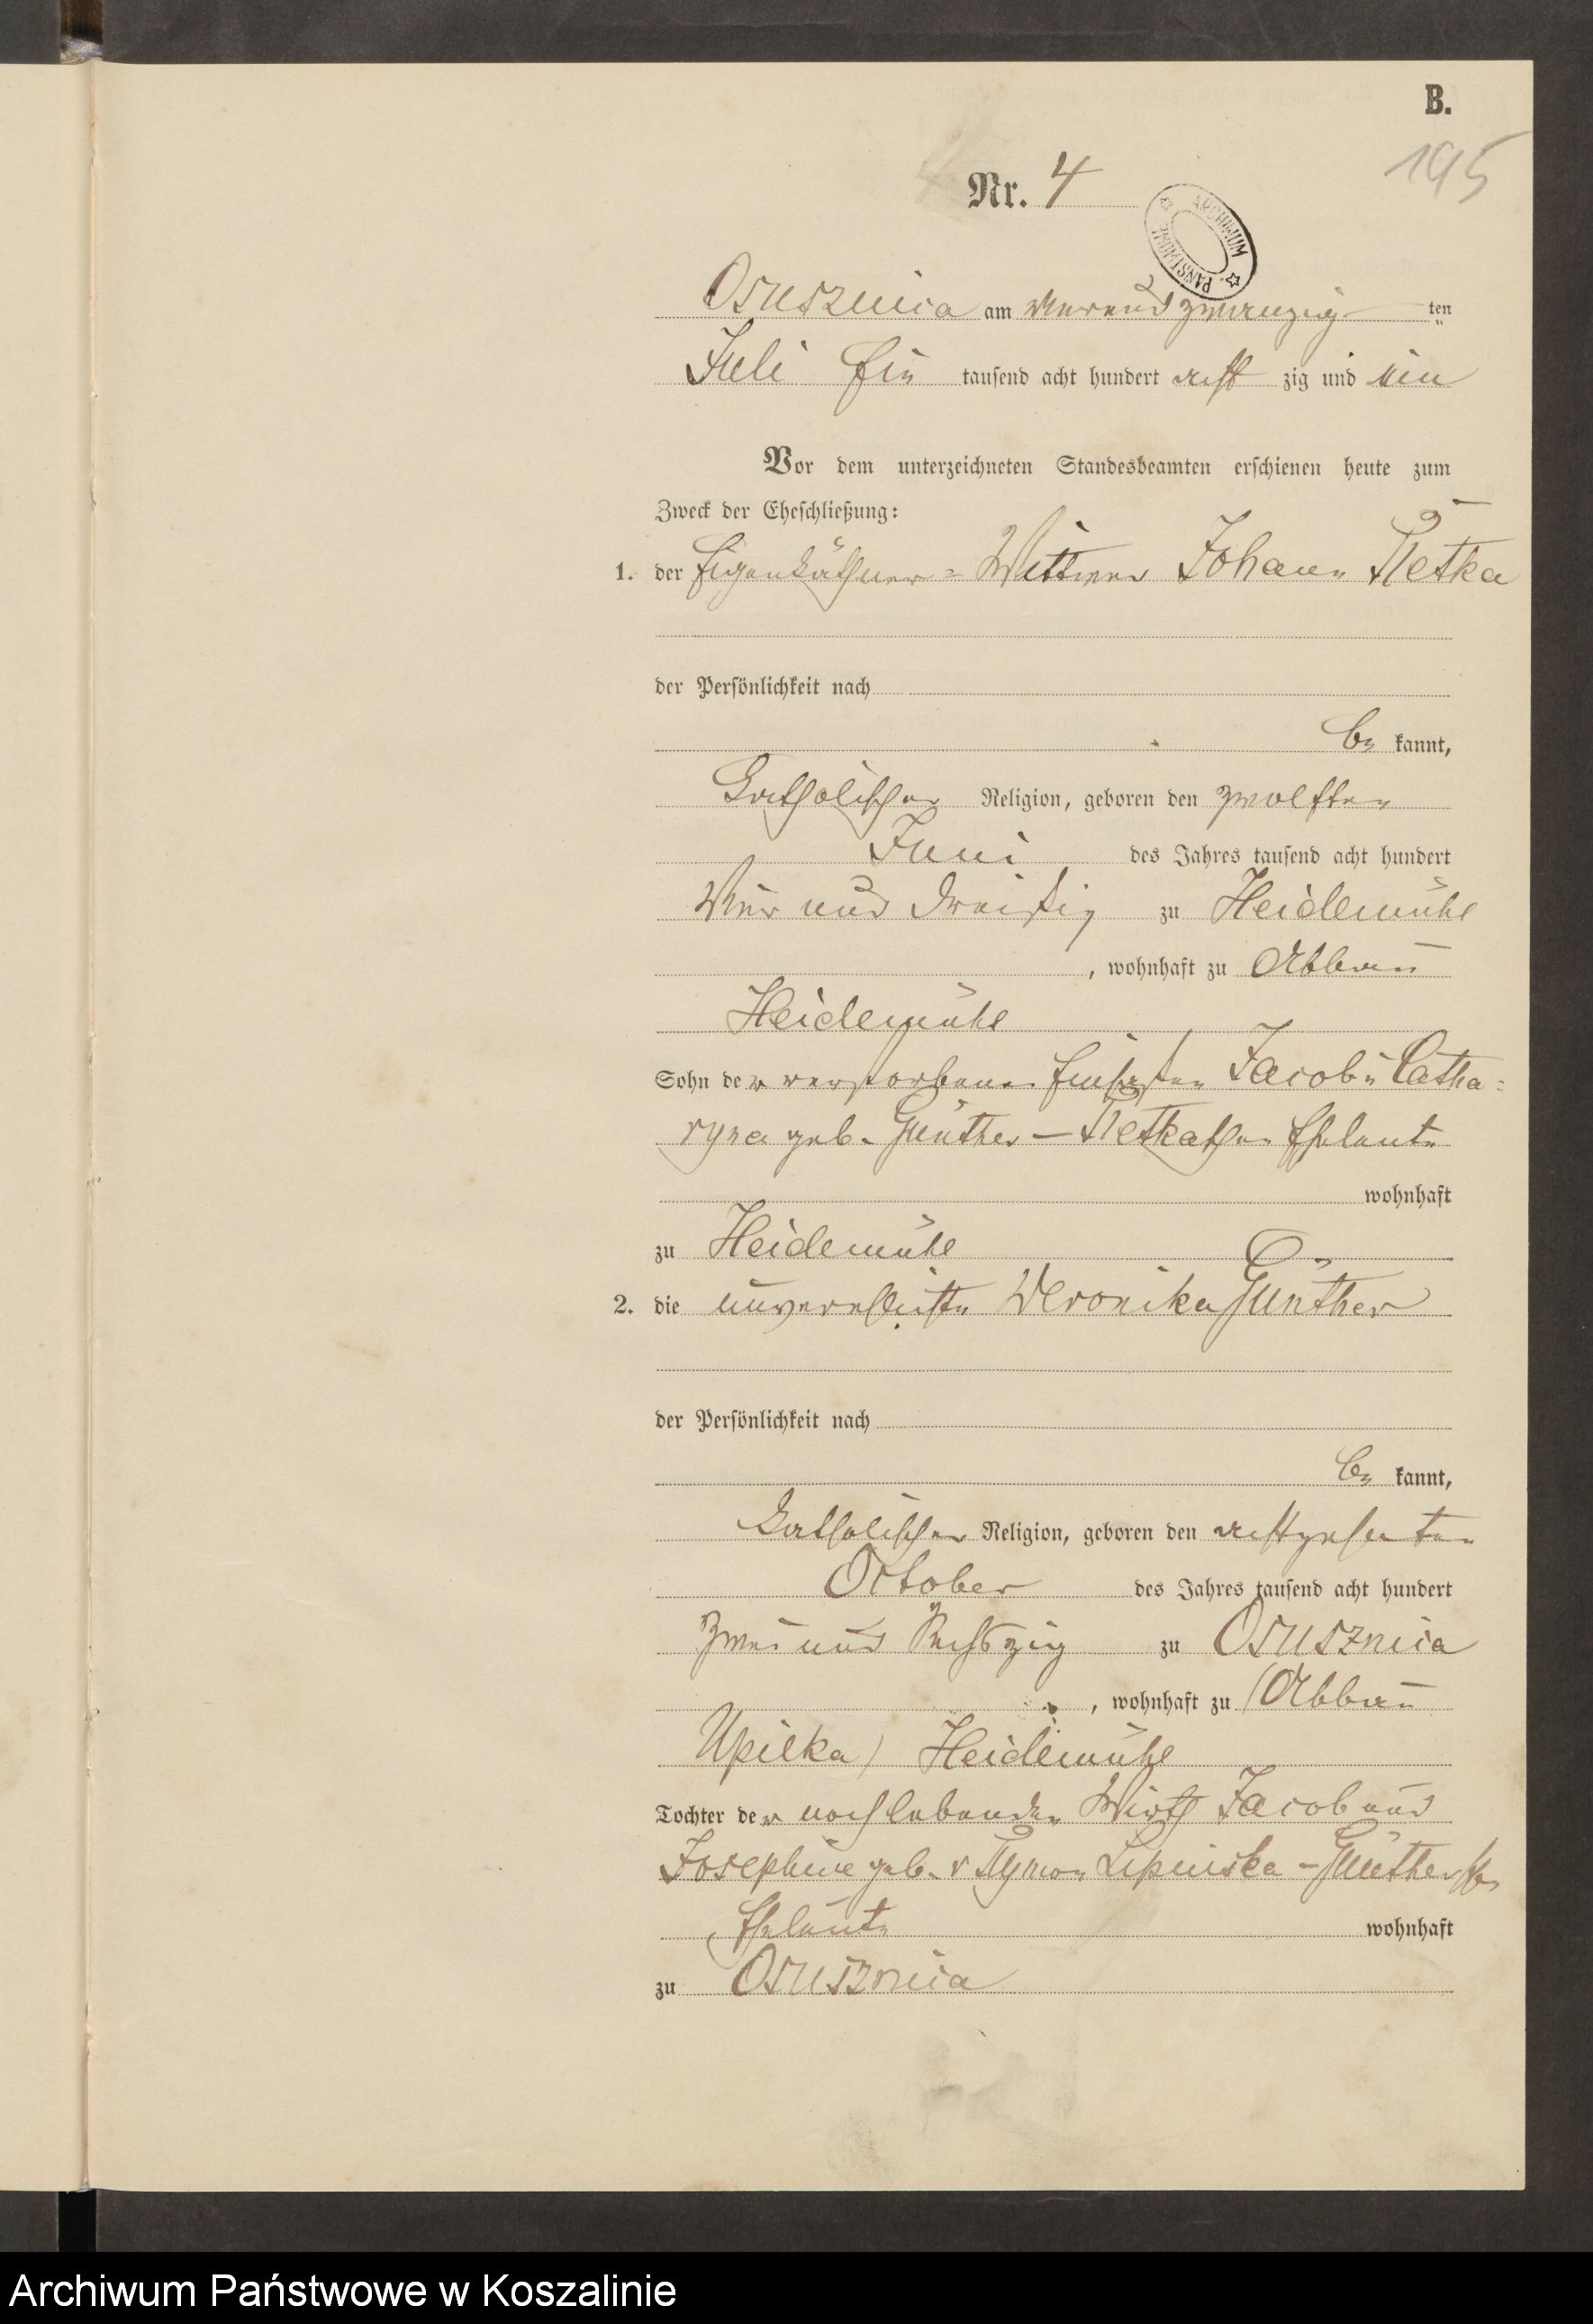 B.
195
Nr. 4
ARCHIWUM PAŃSTWOWE
Osusznica am vierundzwanzig ten
Juli Ein tausend acht hundert acht zig und
Vor dem unterzeichneten Standesbeamten erschienen heute zum
Zweck der Eheschließung:
1. der Eigenkäthner = Wittwer Johann Retka
der Persönlichkeit nach
be kannt,
Katholischer Religion, geboren den zwölften
Juni des Jahres tausend acht hundert
Vier und dreißig zu Heidemühl
, wohnhaft zu Abbau
Heidemühl
Sohn der verstorbenen Jacob u Catha=
ryna geb. Günther – Retkaschen Eheleute
wohnhaft
zu Heidemühl
2. die unverehelichte Weronika Günther
der Persönlichkeit nach
be kannt,
Katholischer Religion, geboren den achtzehnten
October des Jahres tausend acht hundert
Zwei und sechszig zu Osusznica
, wohnhaft zu (Abbau
Upilka) Heidemühl
Tochter der noch lebenden Wirth Jacob und
Josephine geb. v Lipinska – Güntherschen
Eheleute wohnhaft
zu Osusznica
Archiwum Państwowe w Koszalinie